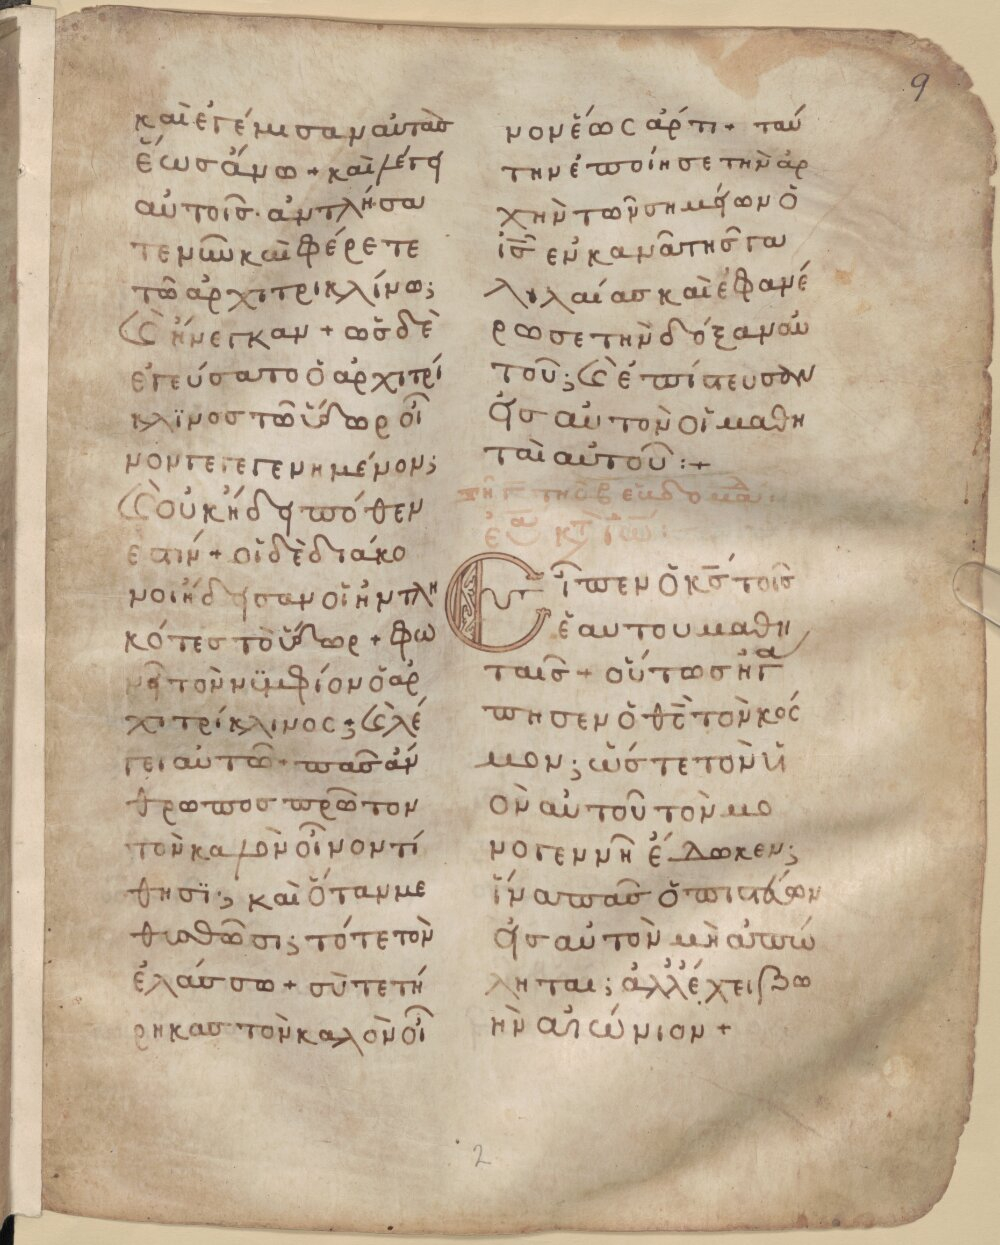 9
καὶ ἐγέμισαν αὐτὰσ
ἕωσ ἄνω + καὶ λέγει
αὐτοῖσ· ἀντλήσα
τε νῦν καὶ φέρετε
τῶ ἀρχιτρικλίνω;
Ϗ ἤνεγκαν + ὡσ δὲ
ἐγεύσατο ὁ ἀρχιτρί
κλϊνοσ τῶ ὕδωρ οἶ
νον γεγεγενημένον;
Ϗ οὐκ ἤδει πόθεν
ἐστίν + οἱ δὲ διάκο
νοι ἤδεισαν οἱ ἠντλη
κότεσ τὸ ὕδωρ + φω
νεῖ τὸν νϊμφίον ὁ ἀρ
χιτρίκλινοσ; Ϗ λέ
γει αὐτῶ + πᾶσ ἄν
θρωποσ πρῶτον
τὸν καλὸν οἶνον τί
θησϊ; καὶ ὅταν με
θισθῶσι; τότε τὸν
ἐλάσσω + σὺ τετή
ρηκασ τὸν καλὸν οἶ
νον ἕωσ ἄρτι + ταύ
την ἐποίησε τὴν ἀρ
χὴν τῶν σημείων ὁ
ις εν κανᾶ τῆσ γα
λιλαίασ καὶ ἐφανέ
ρωσε τὴν δόξαν αὐ
τοῦ; Ϗ ἐπίστευσαν
εἰσ αὐτὸν οἱ μαθη
ταὶ αὐτοῦ :+
τῆ γ τῆσ β εὐδομα
ἐκ τ κτ ιω :
Εἶπεν ὁ κσ τοῖσ
ἑαυτου μαθη
ταῖσ + οὕτωσ ἠγα
πησεν ὁ θσ τὸν κόσ
μον; ὥστε τὸν υἱ
ὸν αὐτοῦ τὸν μο
νογεννῆ ἔδωκεν;
ἵνα πᾶσ ὁ πιστεύων
εἰσ αὐτὸν μὴ ἀπώ
ληται; ἀλλ ἔχει ζω
ὴν αἰώνιον +
2